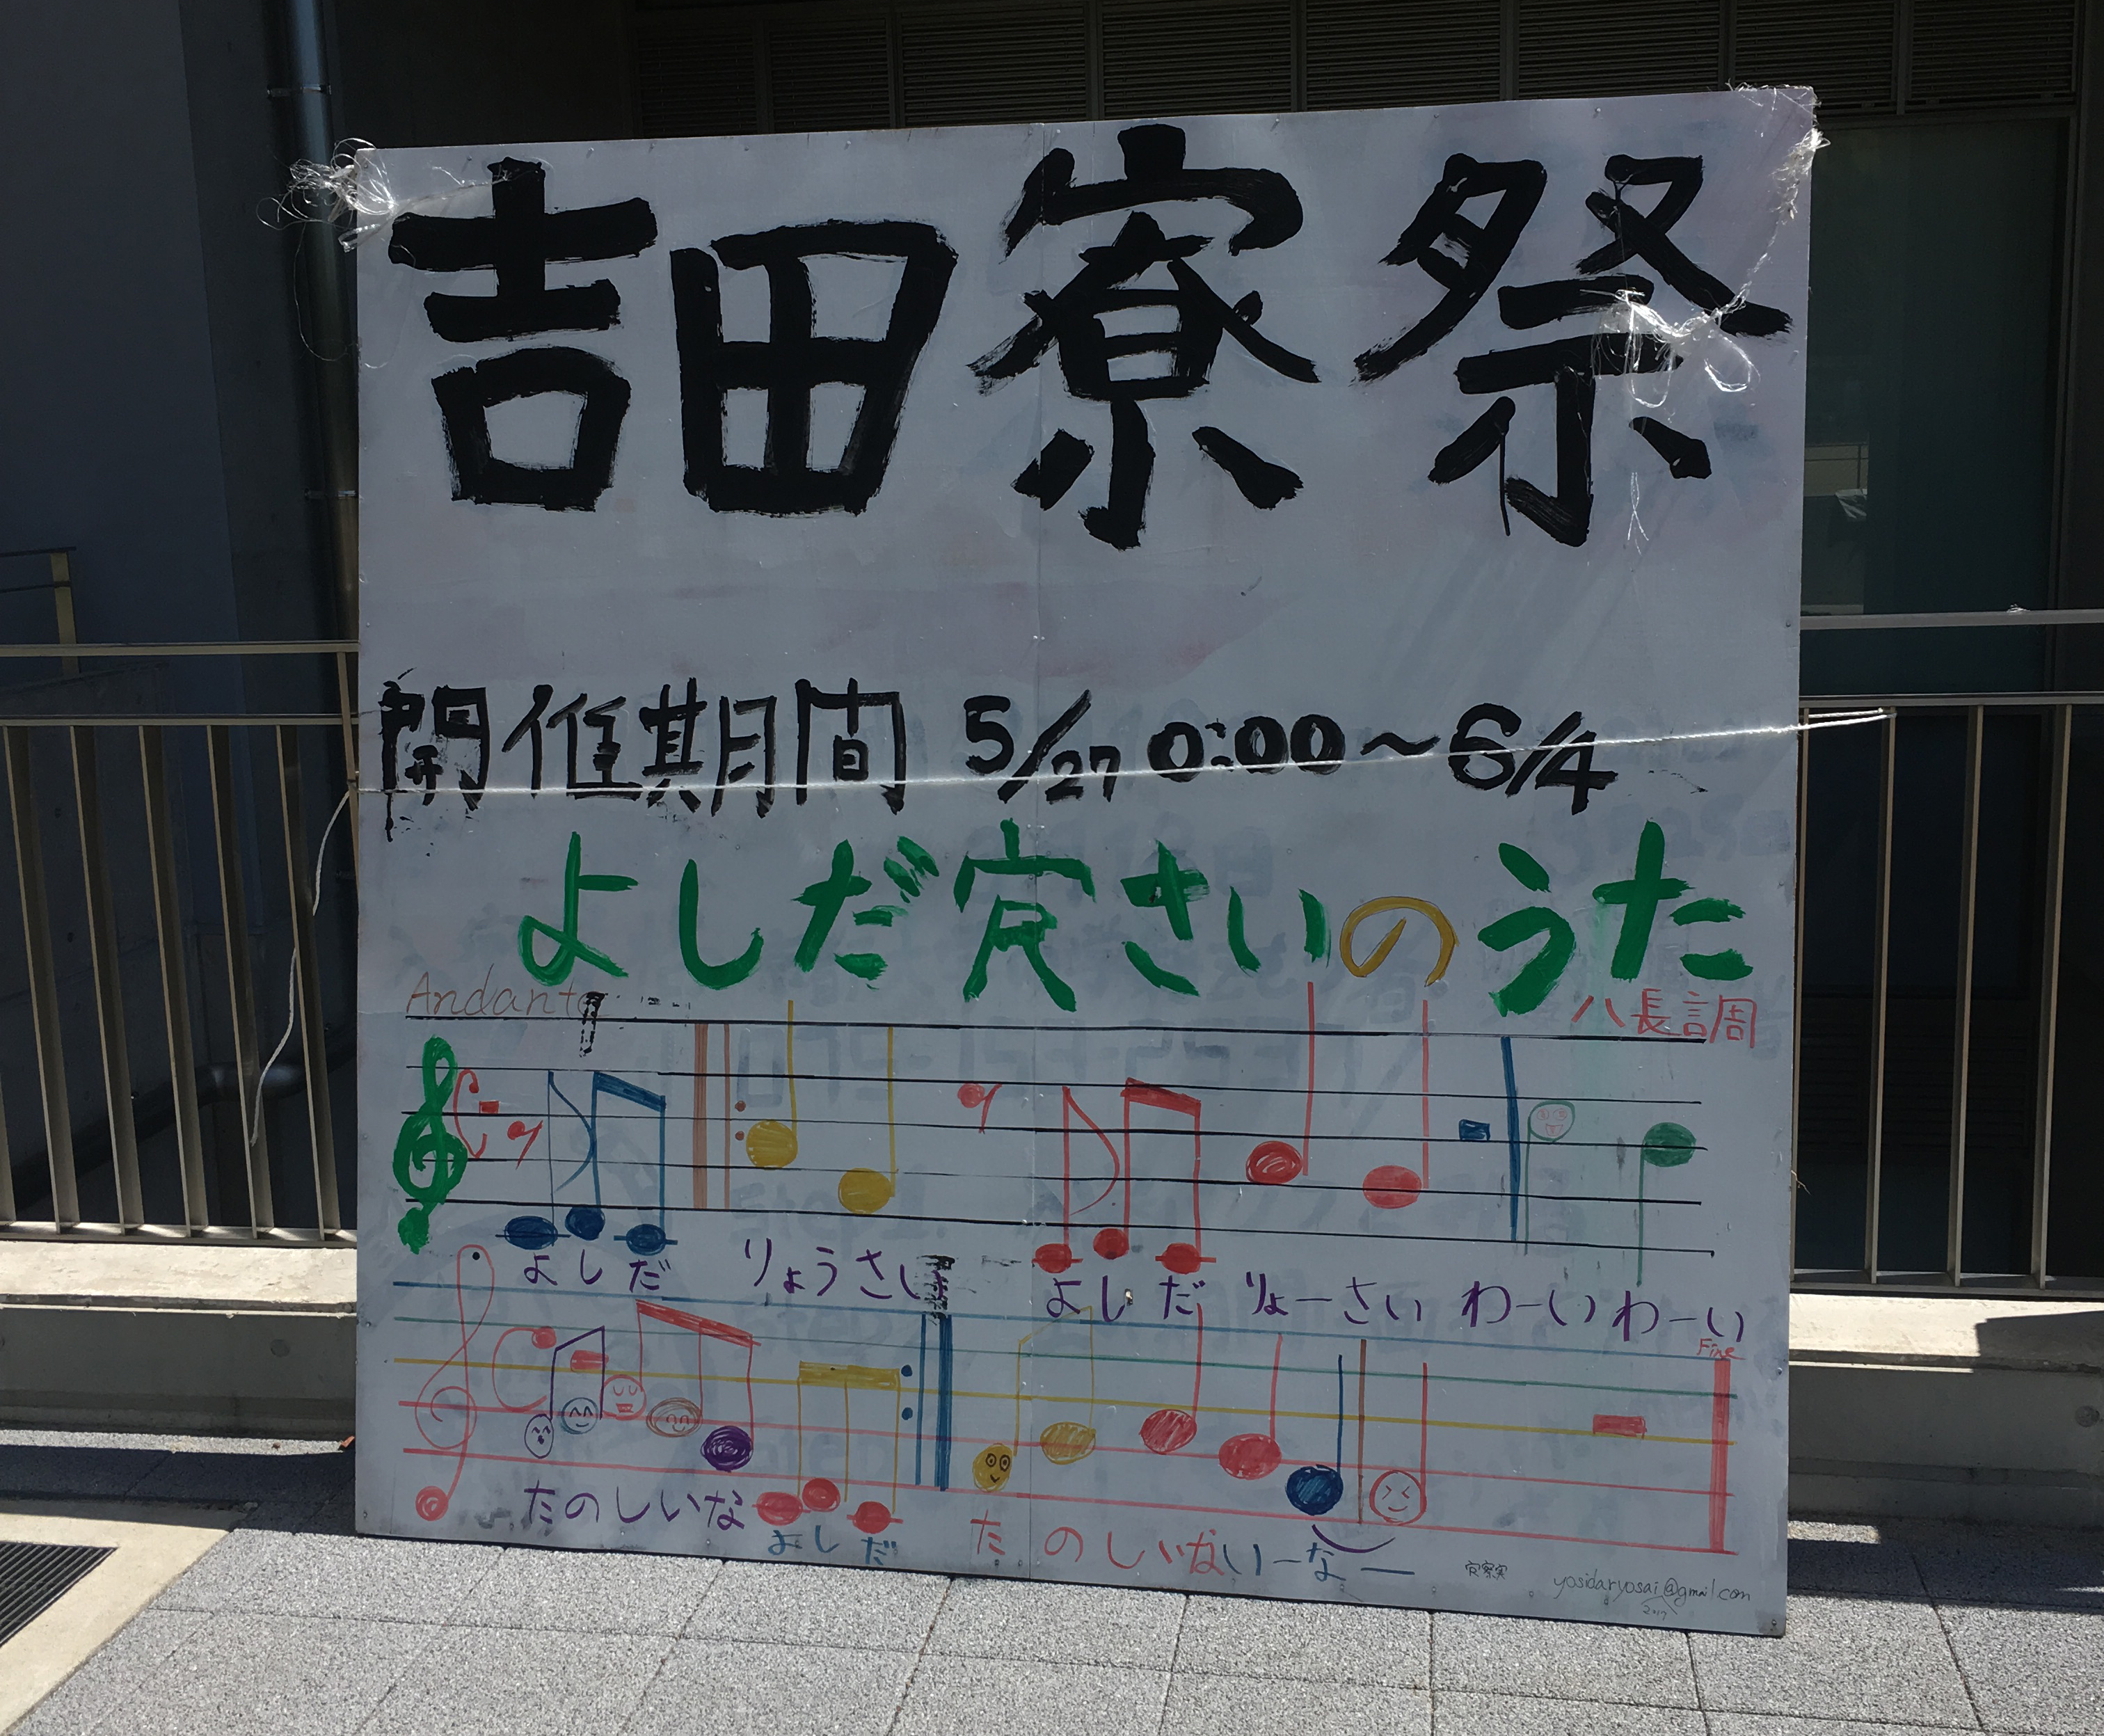 吉田寮祭
開催期間 5/27 0:00～6/4
よしだ寮さいのうた
Andante
ハ長調
よしだ りょうさい よしだ りょーさい わーいわーい
Fine
たのしいな よしだ たのしいないーなー
yosidaryosai@gmail.com
2017